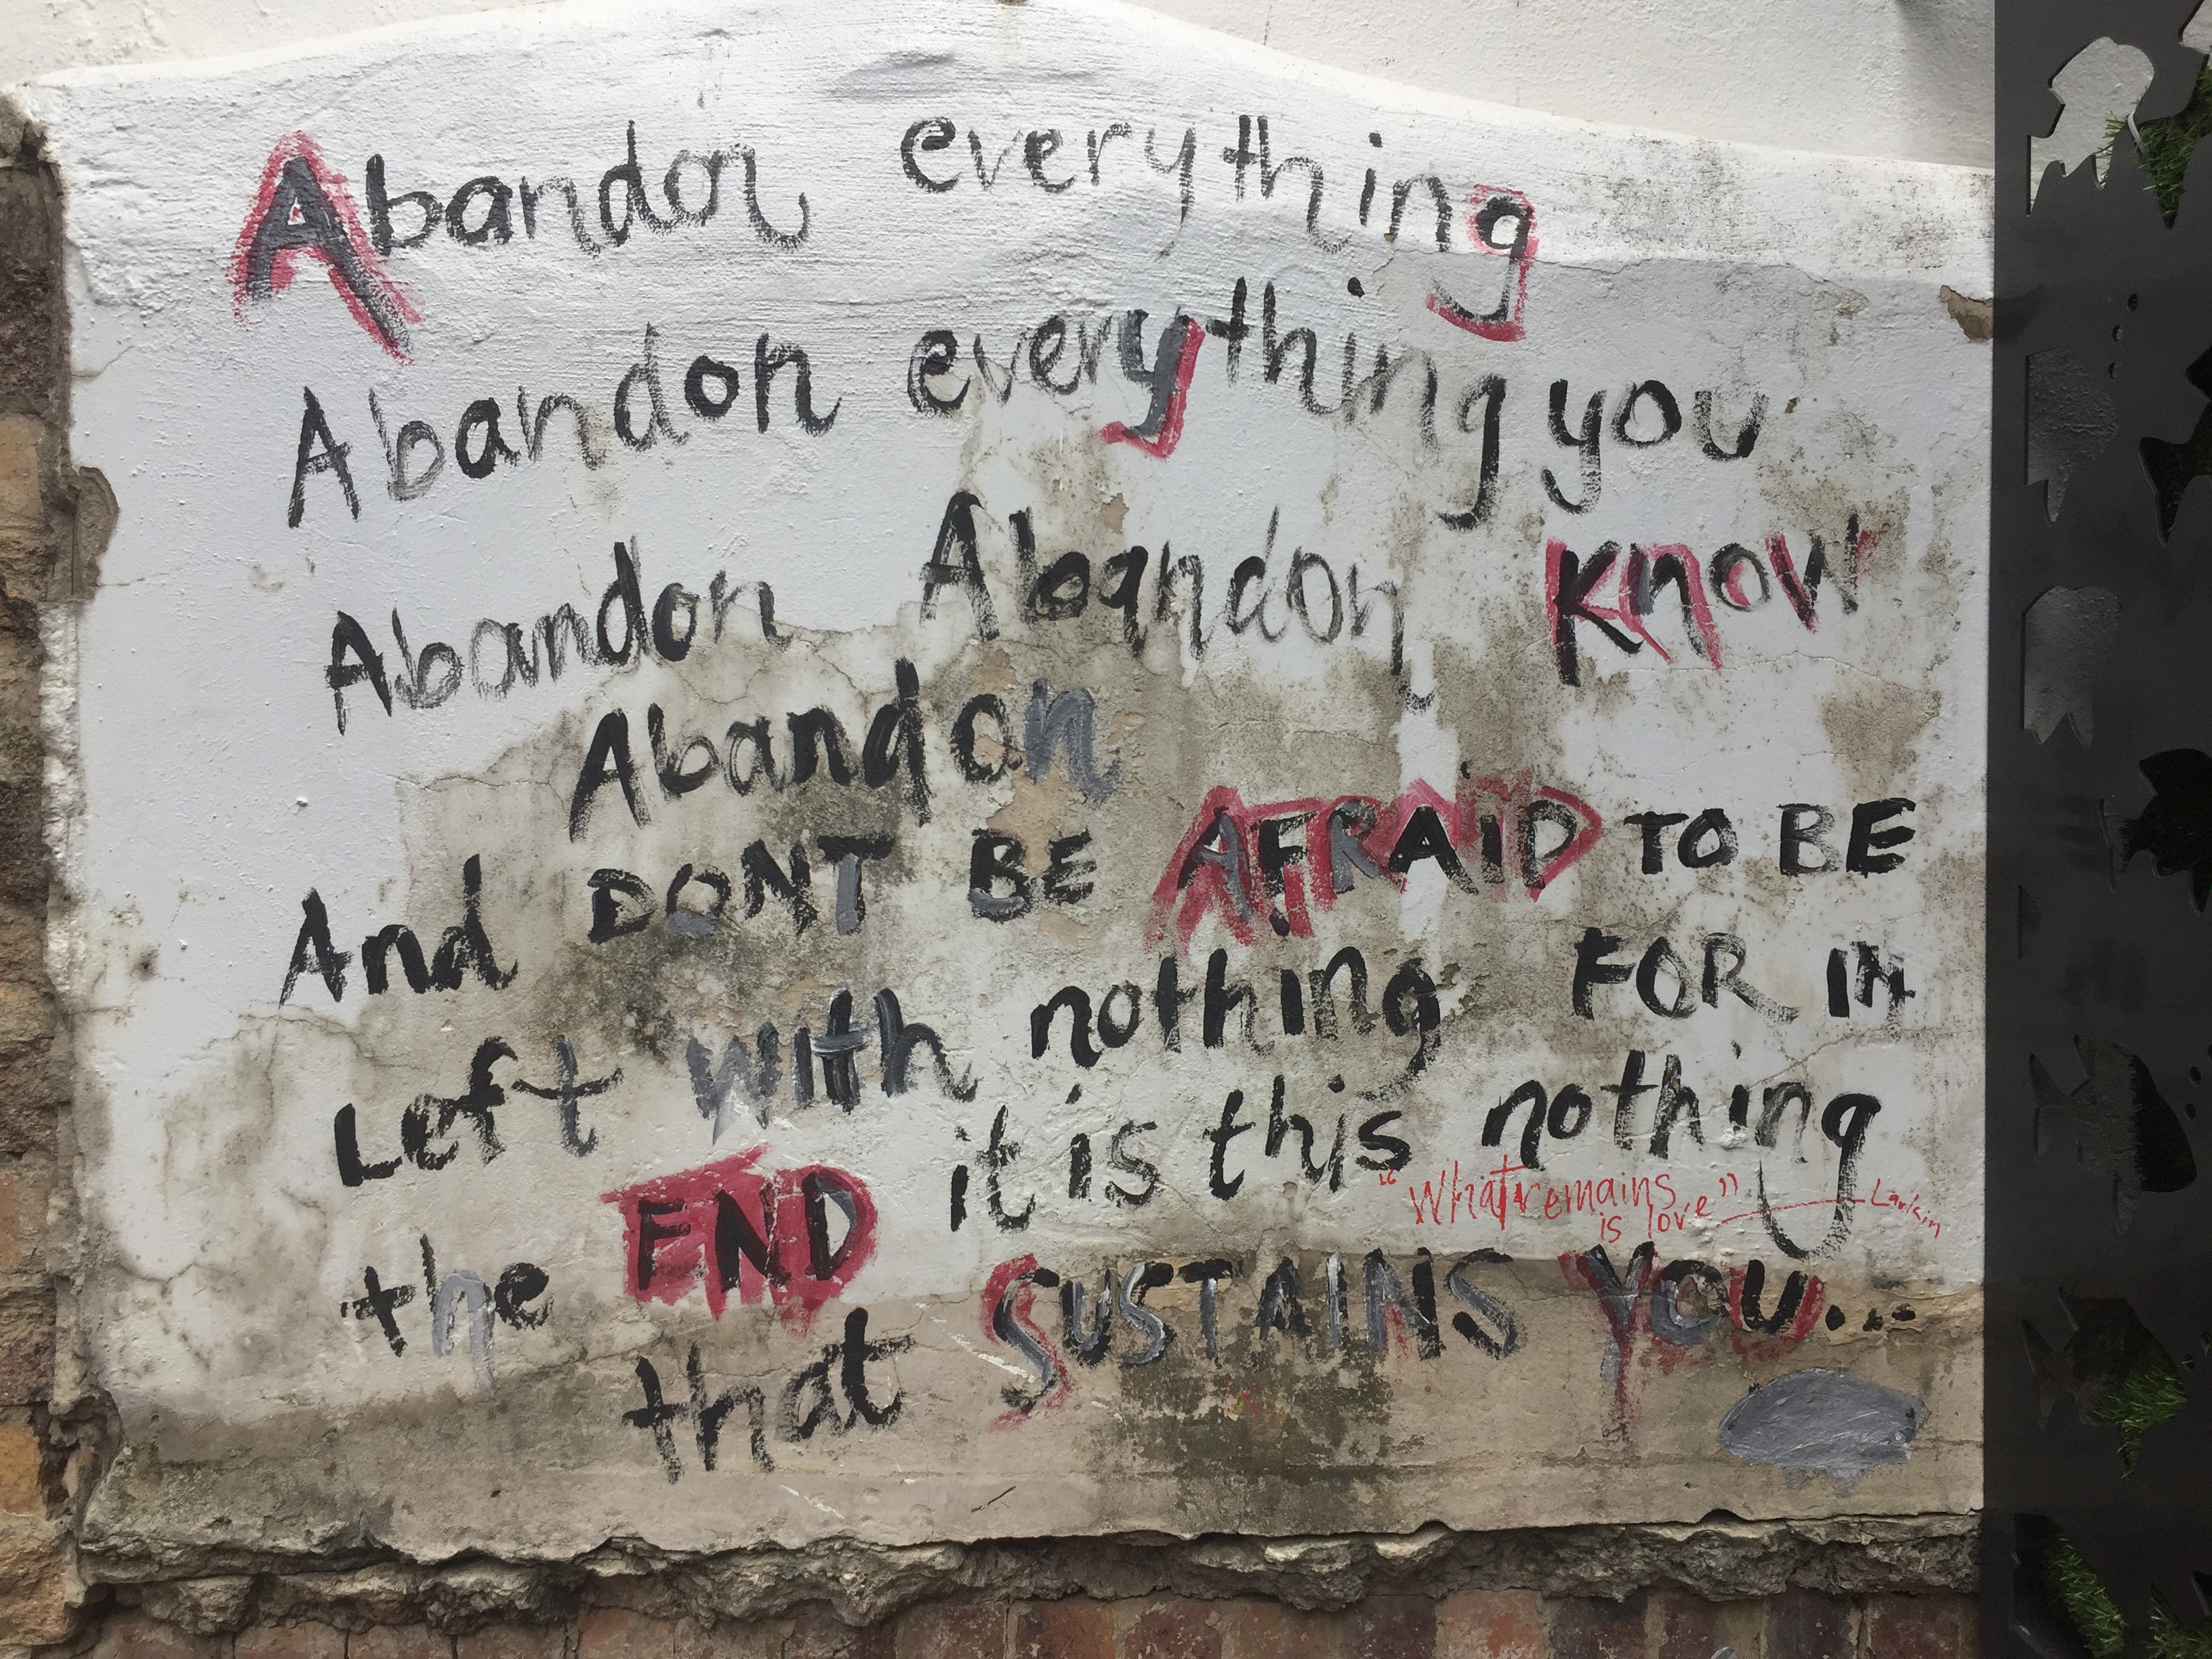 Abandon everything
Abandon everything you
Abandon Abandon know
Abandon
And DONT BE AFRAiD TO BE
Left with nothing FOR IN
the END it is this nothing
"What remains
is love" Larkin
that SUSTAINS YOU...